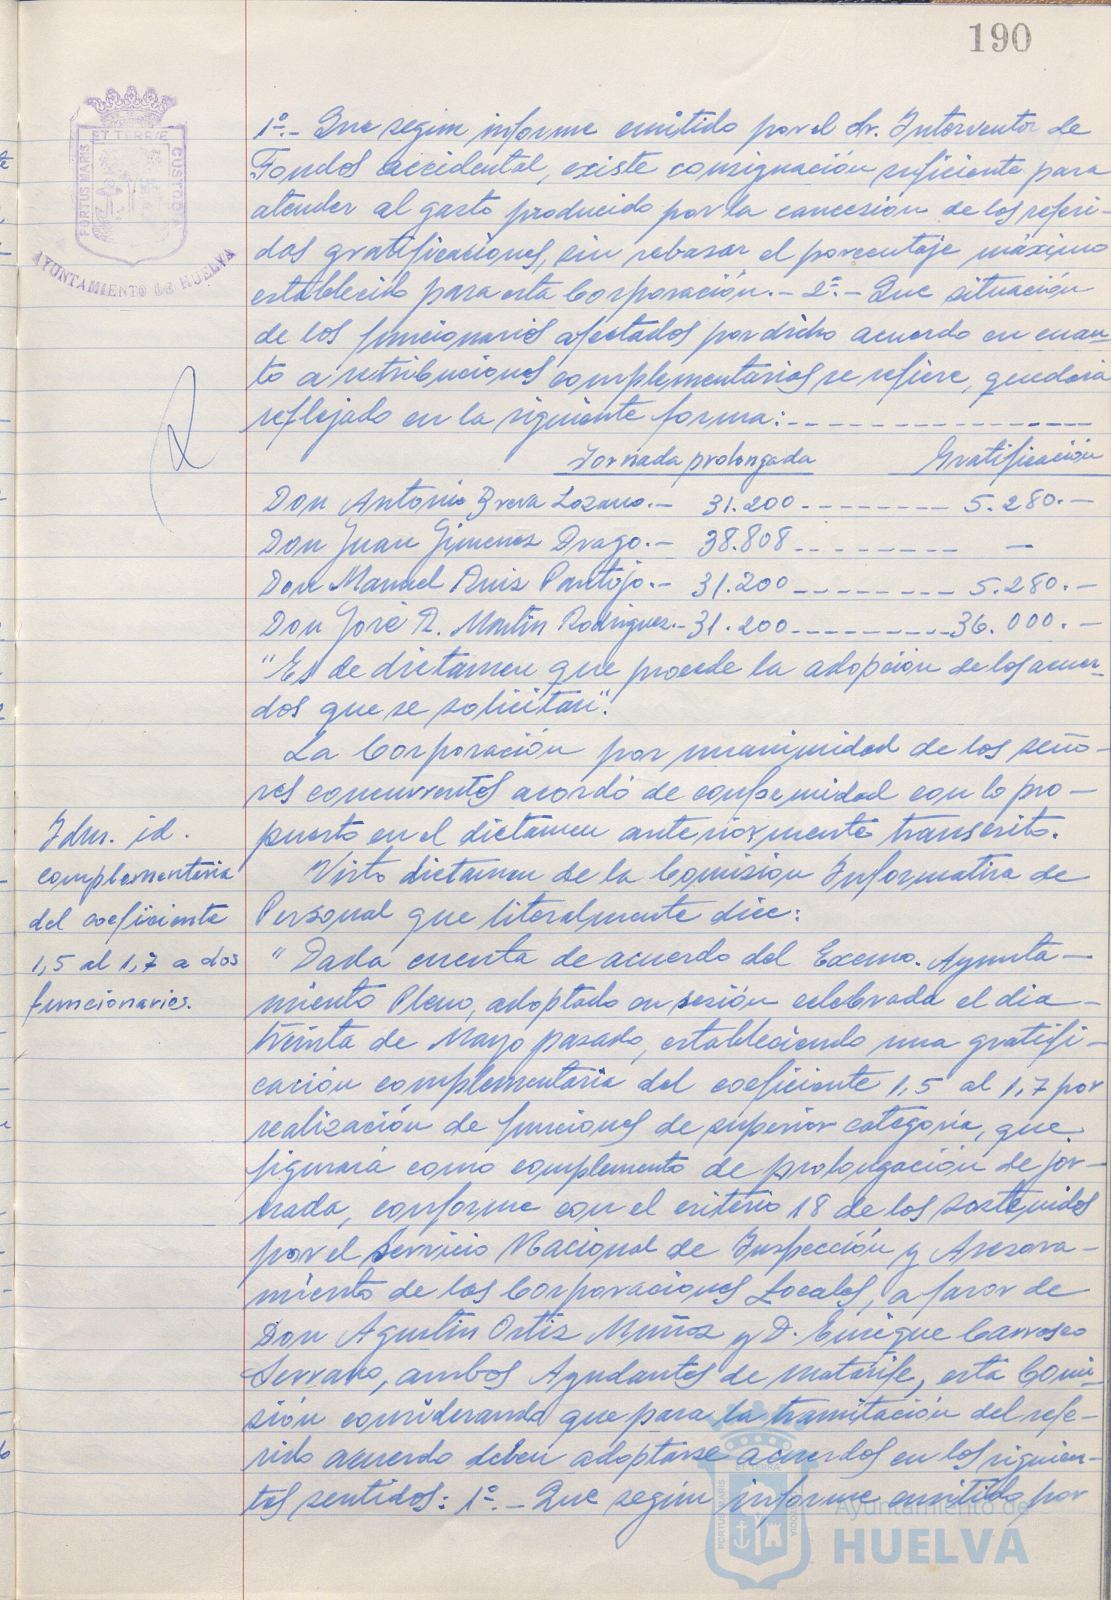 190
PORTUS MARIS ET TERRÆ CUSTODIA
AYUNTAMIENTO de HUELVA
1º.- Que según informe emitido por el Sr. Interventor de
Fondos accidental, existe consignación suficiente para
atender al gasto producido por la concesión de los referi-
das gratificaciones, sin rebasar el porcentaje máximo
establecido para esta Corporación.- 2º.- Que situación
de los funcionarios afectados por dicho acuerdo en cuan-
to a retribuciones complementarias se refiere, quedaría
reflejado en la siguiente forma:
Jornada prolongada Gratificación
Don Antonio Brera Lozano.- 31.200 5.280.-
Don Juan Gimenez Drago.- 38.808 -
Don Manuel Ruiz Pantojo.- 31.200 5.280.-
Don José R. Martín Rodriguez.- 31.200 36.000.-
"Es de dictamen que procede la adopción de los acuer-
dos que se solicitan".
La Corporación por unanimidad de los seño-
res concurrentes acordó de conformidad con lo pro-
puesto en el dictamen anteriormente transcrito.
Idem. id.
complementaria
del coeficiente
1,5 al 1,7 a dos
funcionarios.
Visto dictamen de la Comisión Informativa de
Personal que literalmente dice:
"Dada cuenta de acuerdo del Excmo. Ayunta-
miento Pleno, adoptado en sesión celebrada el dia
treinta de Mayo pasado, estableciendo una gratifi-
cación complementaria del coeficiente 1,5 al 1,7 por
realización de funciones de superior categoría, que
figurará como complemento de prolongación de jor-
nada, conforme con el criterio 18 de los sostenidos
por el Servicio Nacional de Inspección y Asesora-
miento de las Corporaciones Locales, a favor de
Don Agustín Ortiz Muñoz y D. Enrique Carrasco
Serrano, ambos Ayudantes de matarife, esta Comi-
sión considerando que para la tramitación del refe-
rido acuerdo deben adoptarse acuerdos en los siguien-
tes sentidos: 1º.- Que según informe emitido por
Ayuntamiento de
HUELVA